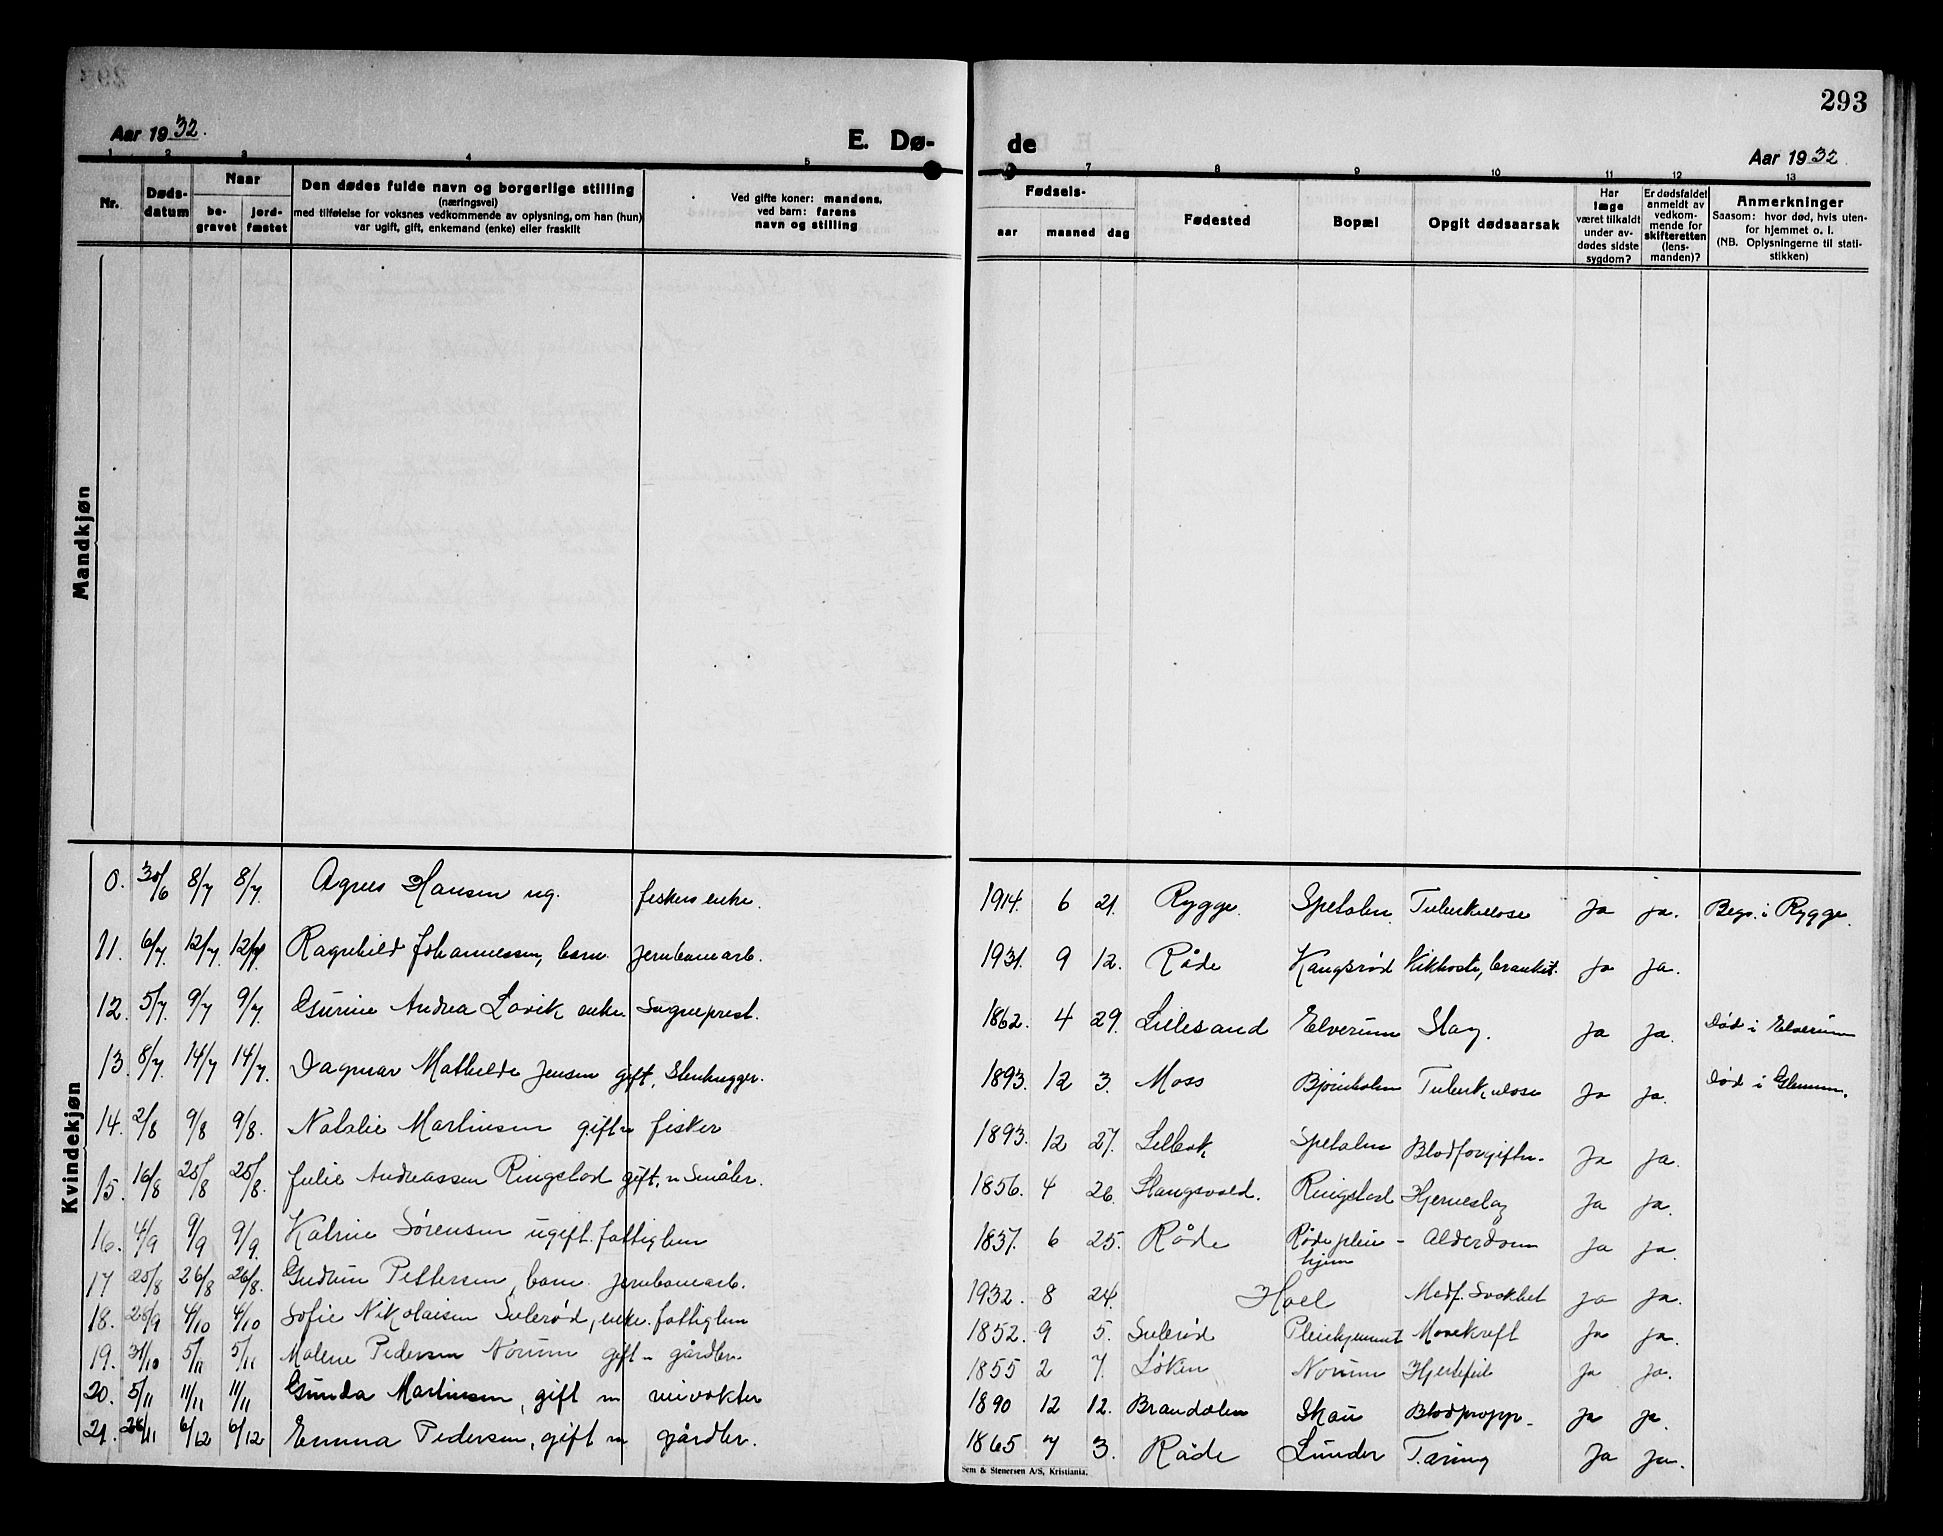 293
Aar 1932. E. Dø- de Aar 1932
1 2 3 4 5 7 8 9 10 11 12 13
Nr. Døds-datum Naar be-gravet jord-fæstet Den dødes fulde navn og borgerlige stilling (næringsvei) med tilføielse for voksnes vedkommende av oplysning, om han (hun) var ugift, gift, enkemand (enke) eller fraskilt Ved gifte koner: mandens, ved barn: farens navn og stilling Fødsels- aar maaned dag Fødested Bopæl Opgit dødsaarsak Har læge været tilkaldt under av-dødes sidste sygdom? Er dødsfaldet anmeldt av vedkom-mende for skifteretten (lens-manden)? Anmerkninger Saasom: hvor død, hvis uten-for hjemmet o. l. (NB. Oplysningerne til stati-stikken)
Mandkjøn
Kvindekjøn
0. 30/6 8/7 8/7. Agnes Hansen ug. fiskers enke. 1914. 6 21. Rygge. Spetalen Tuberkulose Ja ja. Begr. i Rygge.
11. 6/7. 12/7. 12/7. Ragnhild Johannessen, barn. Jernbanearb. 1931. 9 12. Råde Kangsrød Kikhoste, bronkit. Ja Ja.
12. 5/7. 9/7 9/7. Gurine Andrea Lavik enke Sogneprest. 1862. 4 29. Lillesand Elverum Slag. Ja Ja. Død i Elverum
13. 8/7. 14/7 14/7. Dagmar Mathilde Jensen gift, Stenhugger. 1893. 12 3. Moss Bjørnholen Tuberkulose Ja Ja. Død i Glemmen.
14. 2/8 9/8 9/8. Natalie Martinsen gift m fisker 1893. 12 27. Spetalen Blodforgiftn. Ja Ja.
15. 16/8 25/8 25/8. Julie Andreassen Ringstad gift, m Småbr. 1856. 4 26. Slangsvold. Ringstad Hjerneslag Ja Ja.
16. 4/9 9/9 9/9. Katrine Sørensen ugift. fattiglem 1837. 6 25. Råde Råde pleie-hjem Alderdom Ja Ja.
17 25/8 26/8 26/8. Gudrun Pettersen, barn. Jernbanearb. 1932. 8 24. Hoel Medf. Svakhet Ja Ja.
18. 28/9 4/10 4/10 Sofie Nikolaisen Sulerød, enke. fattiglem 1852. 9 5. Sulerød Pleiehjemmet Mavekreft Ja Ja.
19. 31/10 5/11 5/11 Malene Pedersen Norum gift m gårdbr. 1855 2 7. Løken Norum Hjertefeil Ja Ja.
20. 5/11 11/11 11/11 Gunda Martinsen, gift m veivokter 1890 12 12. Brandalen Skau Blodpropp. Ja Ja.
21. 28/11 6/12 6/12 Emma Pedersen, gift m gårdbr. 1865 7 3. Råde Lunder Tæring Ja Ja.
Sem & Stenersen A/S, Kristiania.